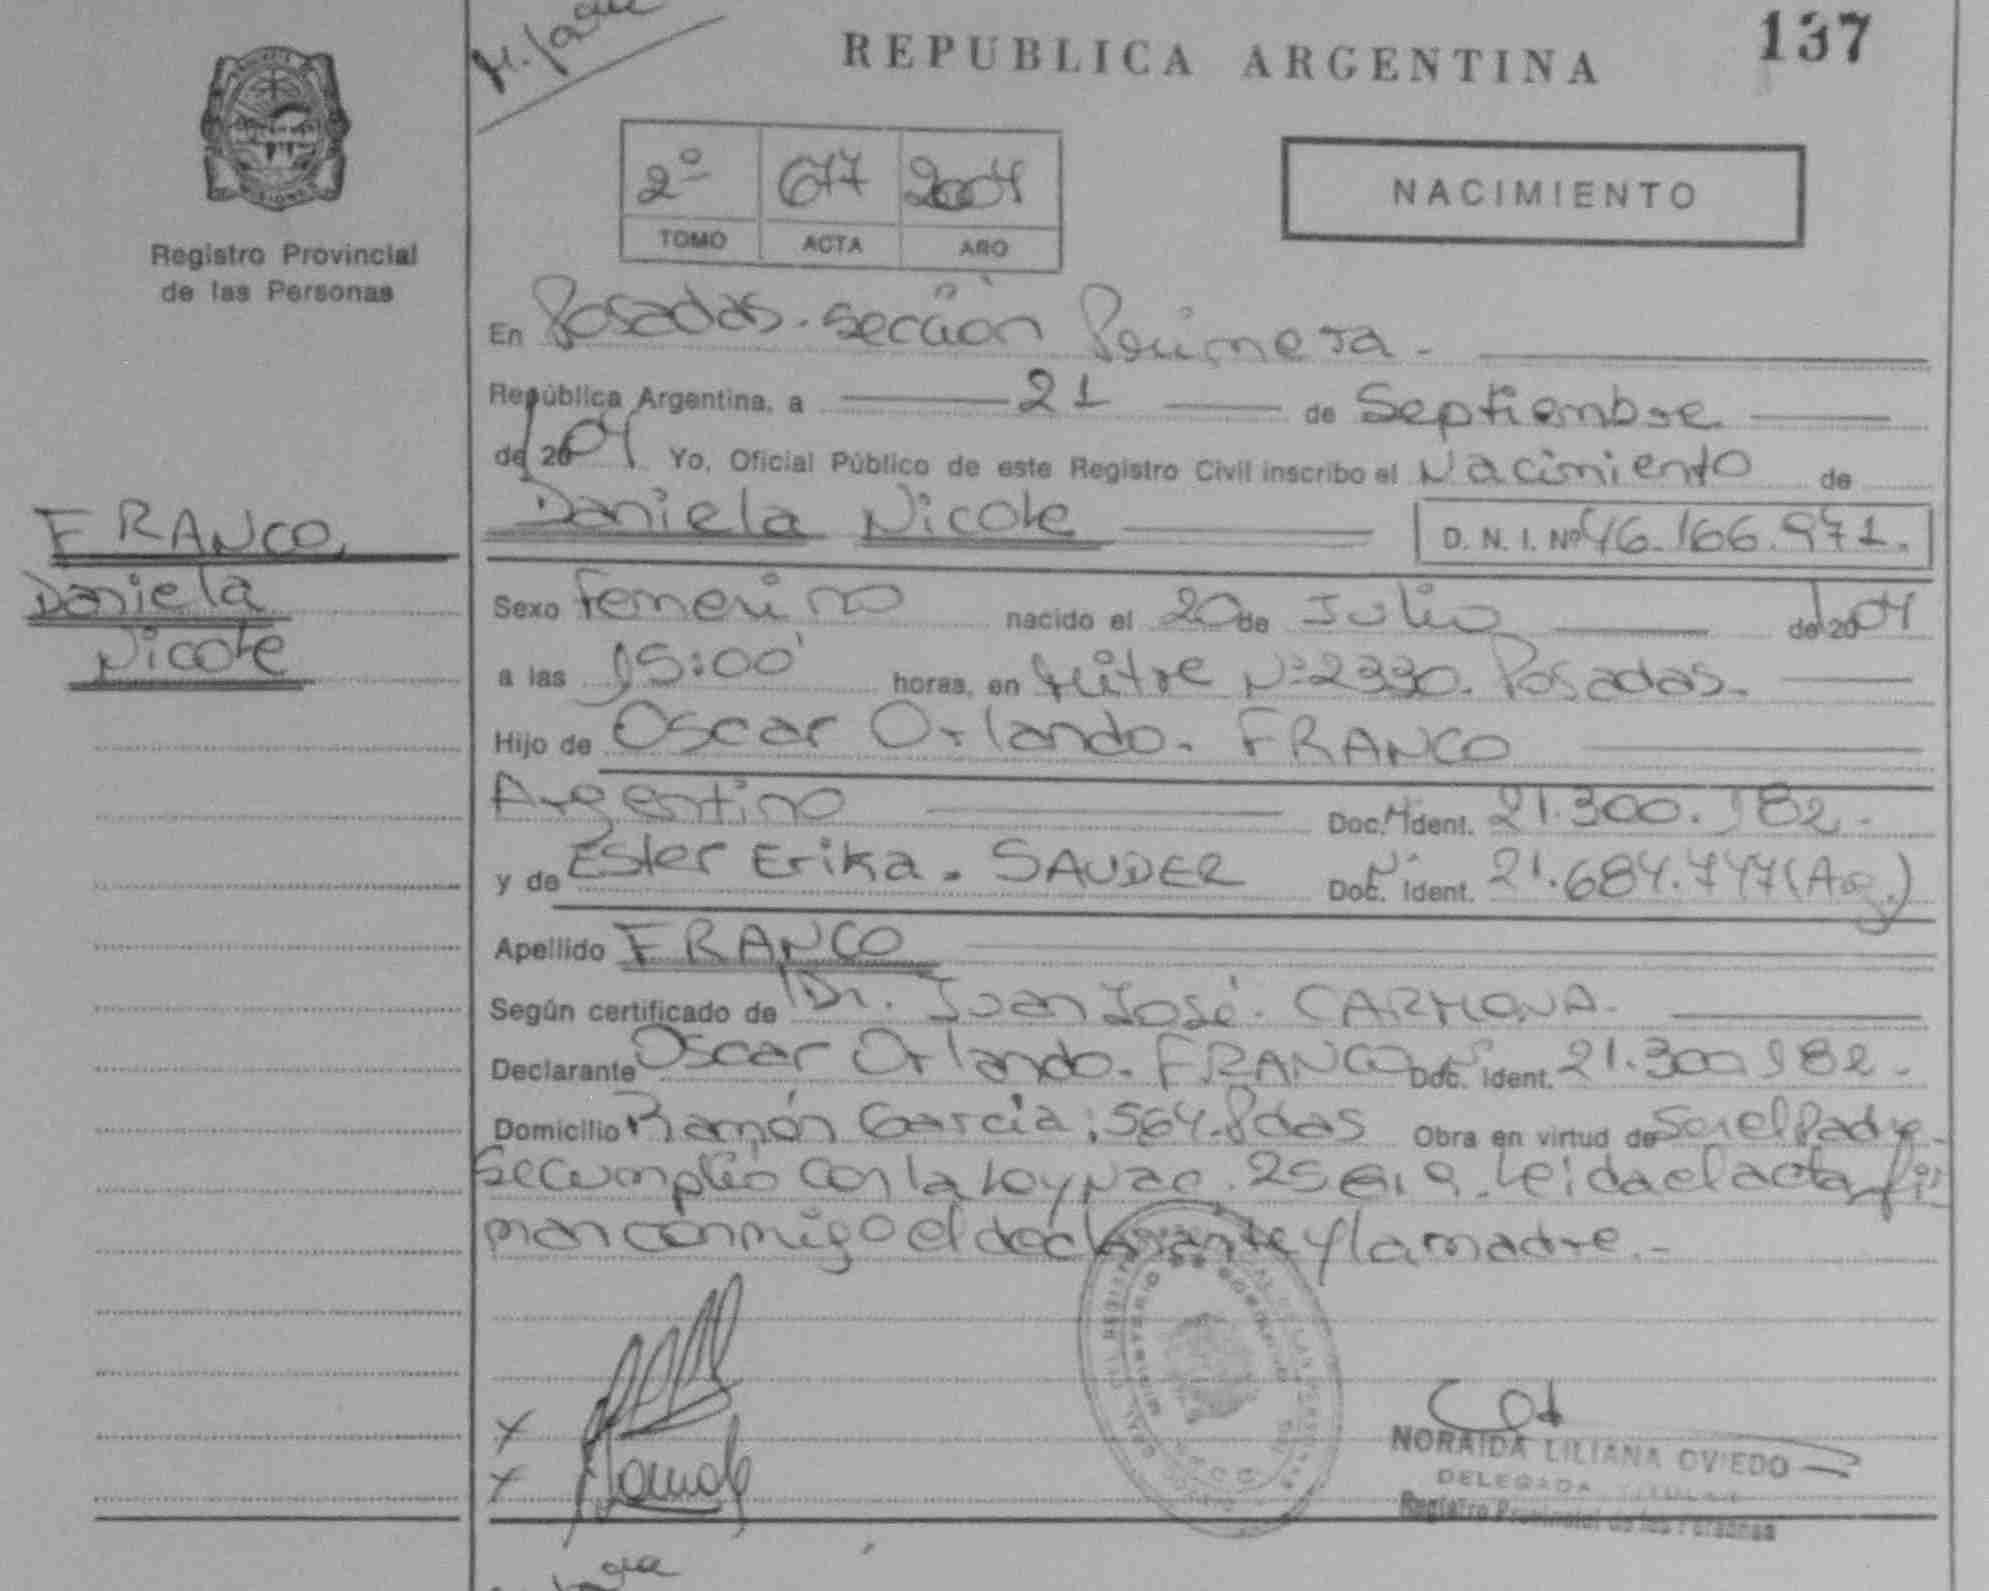 REPUBLICA ARGENTINA
137
Registro Provincial
de las Personas
2º 677 2004
TOMO ACTA AÑO
NACIMIENTO
En Posadas. Sección Primera.
República Argentina, a 21 de Septiembre
de 2004 Yo, Oficial Público de este Registro Civil inscribo el Nacimiento de
FRANCO,
Daniela
Nicole
Daniela Nicole D. N. I. Nº 46.166.971.
Sexo Femenino nacido el 20 de Julio de 2004
a las 15:00' horas, en Mitre Nº 2330. Posadas.
Hijo de Oscar Orlando. FRANCO
Argentino Doc. Ident. 21.300.182.
y de Ester Erika. SAUDER Doc. Ident. 21.684.747 (Arg.)
Apellido FRANCO
Según certificado de Dr. Juan José. CARMONA.
Declarante Oscar Orlando. FRANCO Doc. Ident. 21.300.182.
Domicilio Ramón García; 564. Pdas Obra en virtud de Ser el Padre.
Se cumplió con la Ley Nac. 25.619. Leida el acta, fir
man conmigo el declarante y la madre.
NORAIDA LILIANA OVIEDO
DELEGADA TITULAR
Registro Provincial de las Personas